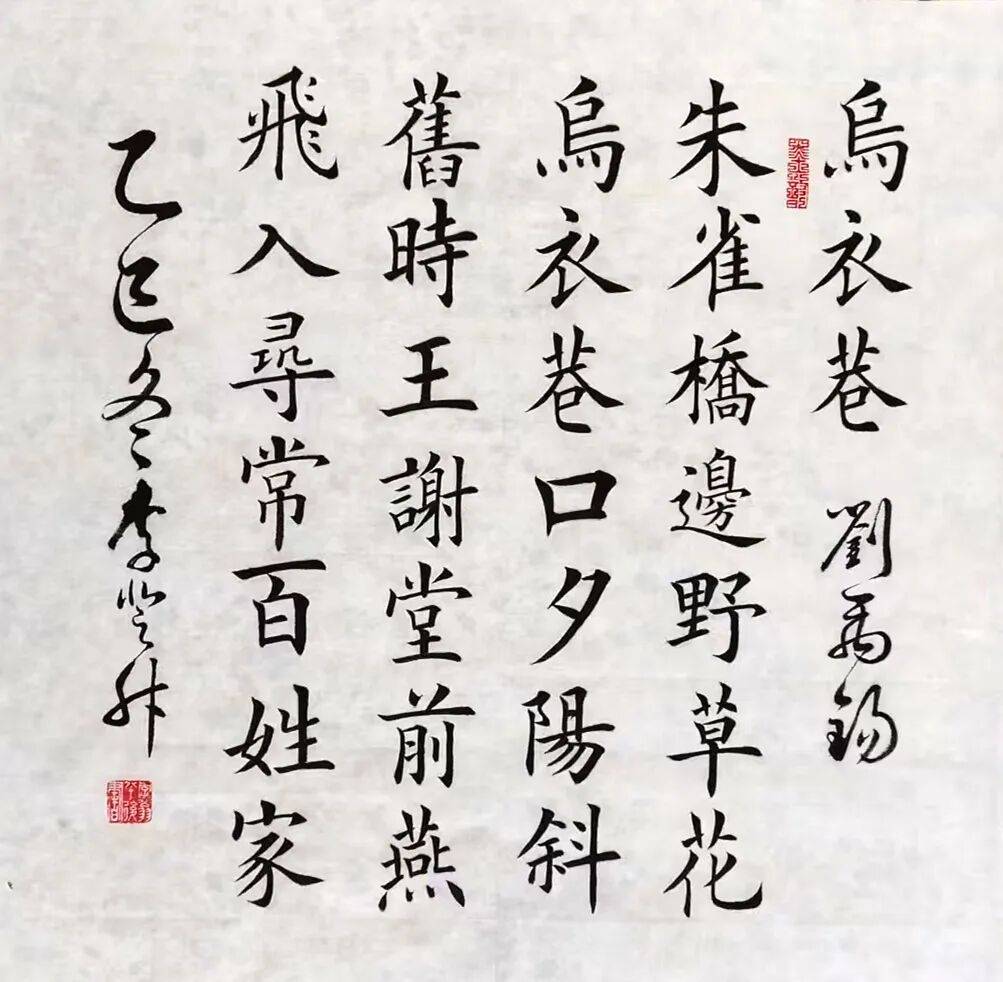 烏衣巷 劉禹錫
朱雀橋邊野草花
烏衣巷口夕陽斜
舊時王謝堂前燕
飛入尋常百姓家
乙巳冬 李